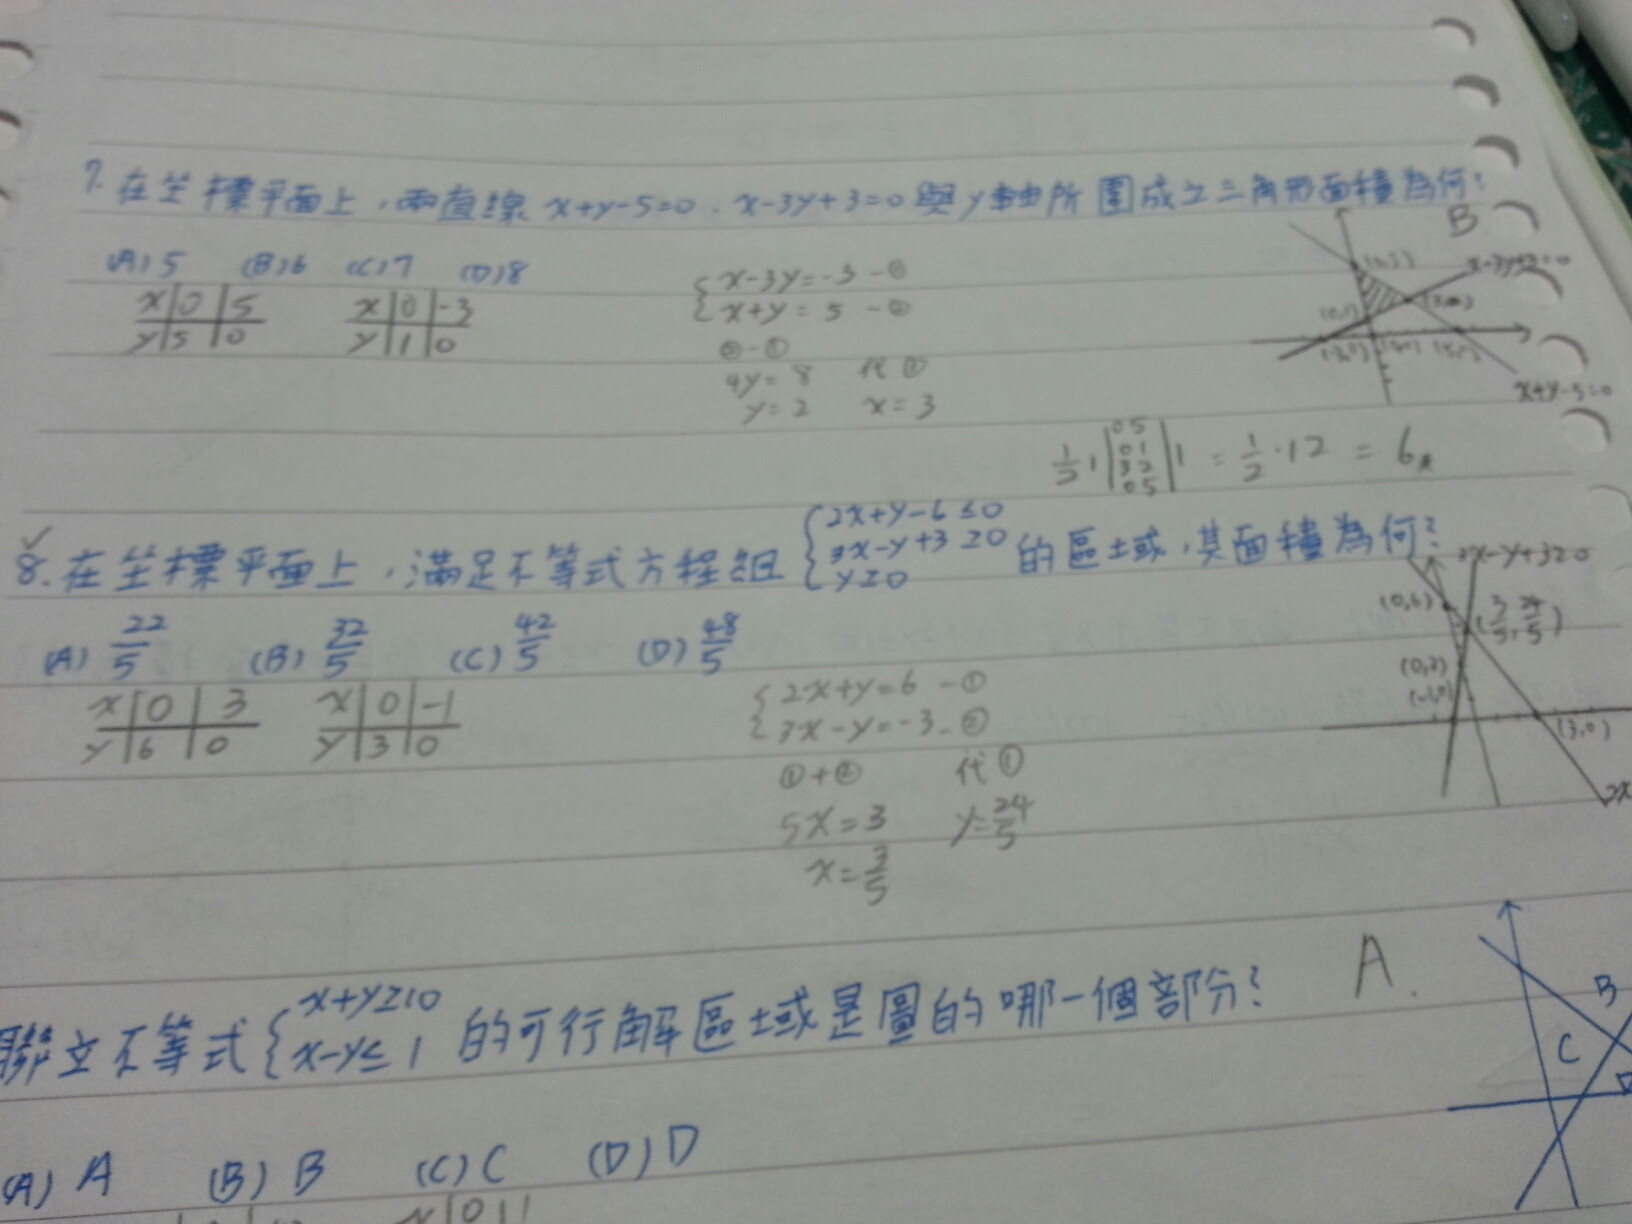 7. 在坐標平面上，兩直線 x+y-5=0、x-3y+3=0 與 y軸所圍成之三角形面積為何?
B
(A) 5 (B) 6 (C) 7 (D) 8
x | 0 | 5
y | 5 | 0
x | 0 | -3
y | 1 | 0
{ x-3y=-3 -①
x+y=5 -②
②-①
4y=8 代①
y=2 x=3
(0,5)
x-3y+3=0
(0,1)
(-3,0)
(5,0)
x+y-5=0
1/2 | |0 5
0 1
3 2
0 5| | = 1/2 · 12 = 6
✓
8. 在坐標平面上，滿足不等式方程組 { 2x+y-6≤0
3x-y+3≥0
y≥0 的區域，其面積為何?
(A) 22/5 (B) 32/5 (C) 42/5 (D) 48/5
x | 0 | 3
y | 6 | 0
x | 0 | -1
y | 3 | 0
{ 2x+y=6 -①
3x-y=-3 -②
①+② 代①
5x=3 y=24/5
x=3/5
3x-y+3≥0
(0,6)
(3/5, 24/5)
(0,3)
(-1,0)
(3,0)
2x
聯立不等式 { x+y≥10
x-y≤1 的可行解區域是圖的哪一個部分?
A.
B
C
D
(A) A (B) B (C) C (D) D